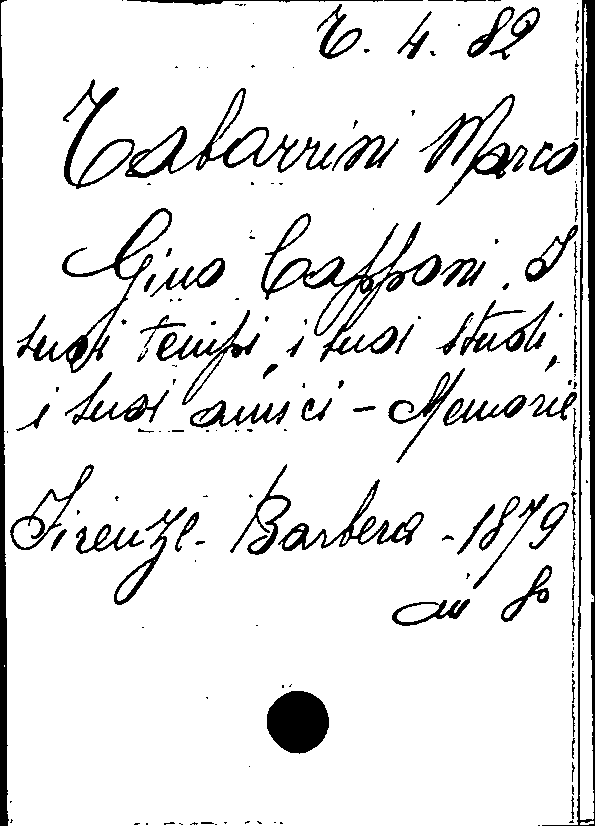 T. 4. 82
Tabarrini Marco
Gino Capponi. I
suoi tempi, i suoi studi,
i suoi amici - Memorie
Firenze - Barbera - 1879
in 8°